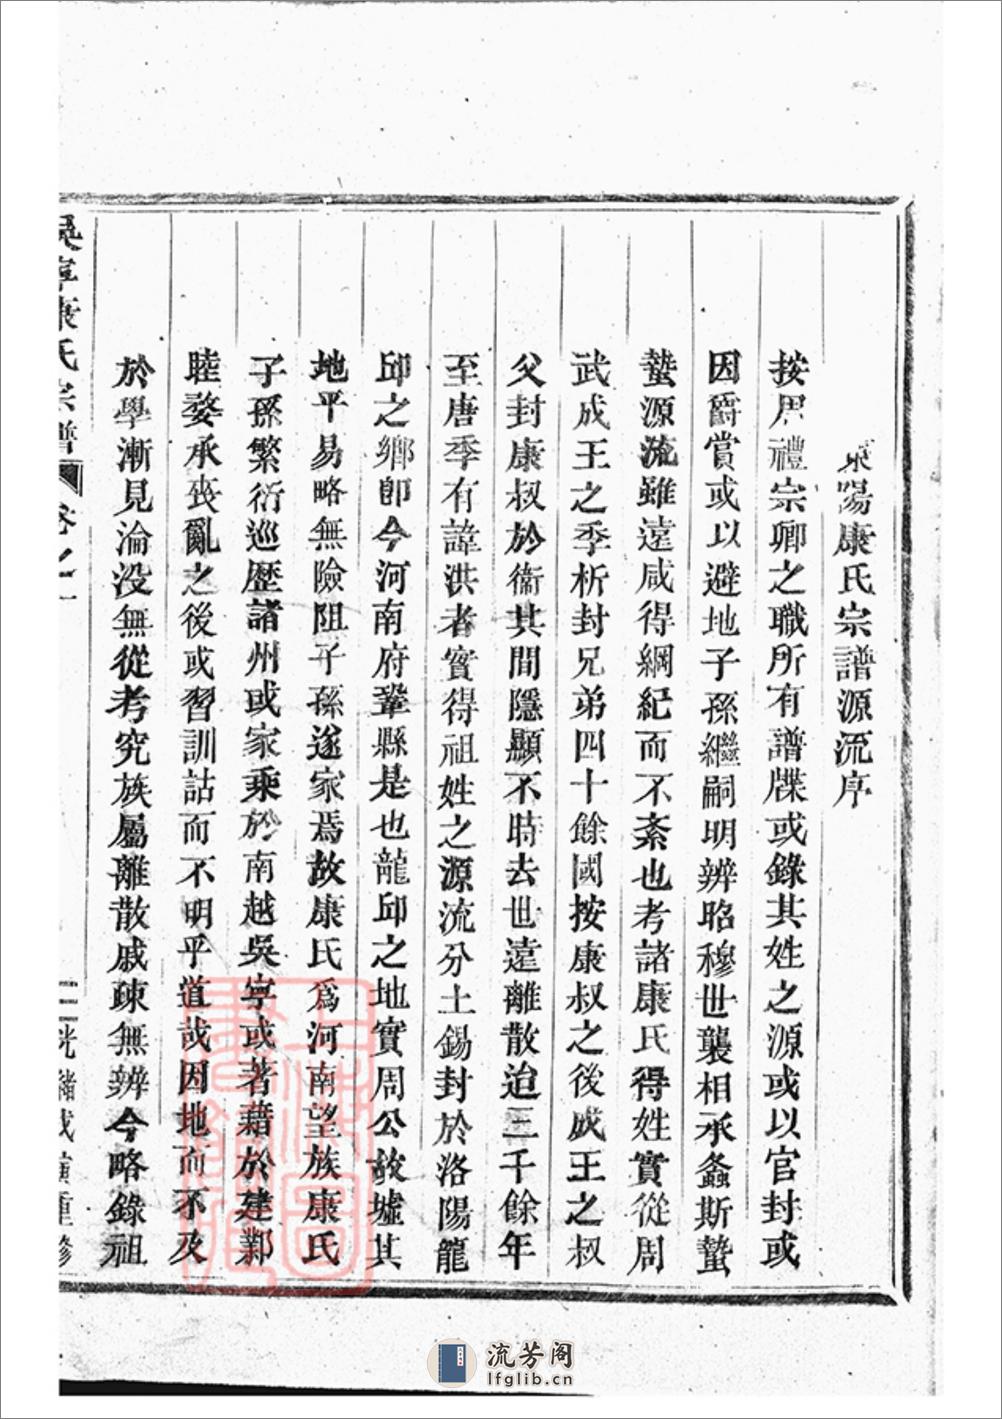 東陽康氏宗譜源流序
按周禮宗卿之職所有譜牒或錄其姓之源或以官封或
因爵賞或以避地子孫繼嗣明辨昭穆世襲相承螽斯蟄
蟄源流雖遠咸得綱紀而不紊也考諸康氏得姓實從周
武成王之季析封兄弟四十餘國按康叔之後成王之叔
父封康叔於衞其間隱顯不時去世遠離散迨三千餘年
至唐季有諱洪者實得祖姓之源流分土錫封於洛陽龍
邱之鄉卽今河南府鞏縣是也龍邱之地實周公故墟其
地平易略無險阻子孫遂家焉故康氏爲河南望族康氏
子孫繁衍巡歷諸州或家乘於南越吳寧或著藉於建鄴
睦婺承喪亂之後或習訓詁而不明乎道哉因地而不及
於學漸見淪没無從考究族屬離散戚疎無辨今略錄祖
吳寧康氏宗譜 卷之一 光緒戊寅重修
流芳阁
lfglib.cn